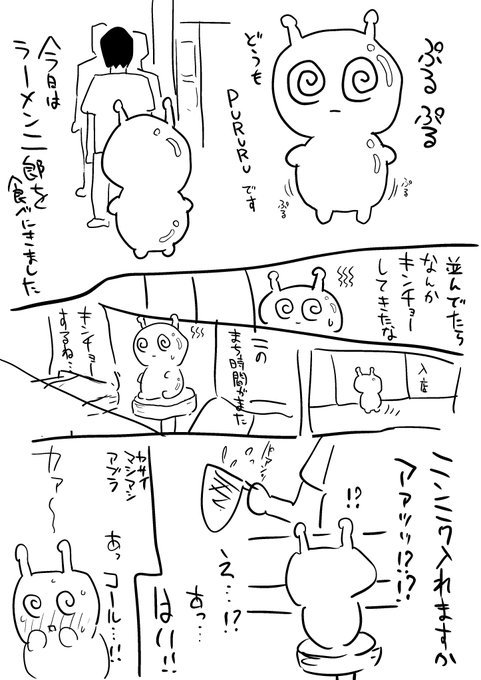 ぷるぷる
どうも
PURURUです
ぷる
ぷる
今日は
ラーメン二郎を
食べにきました
並んでたら
なんか
キンチョー
してきたな
入店
この
まち時間がまた
キンチョー
するね…
ニンニク入れますか
アアッッ!?!?
!?
え…!?
あっ…
はい!!
ヤサイ
マシマシ
アブラ
あっ
コール…!!
カァ〜〜